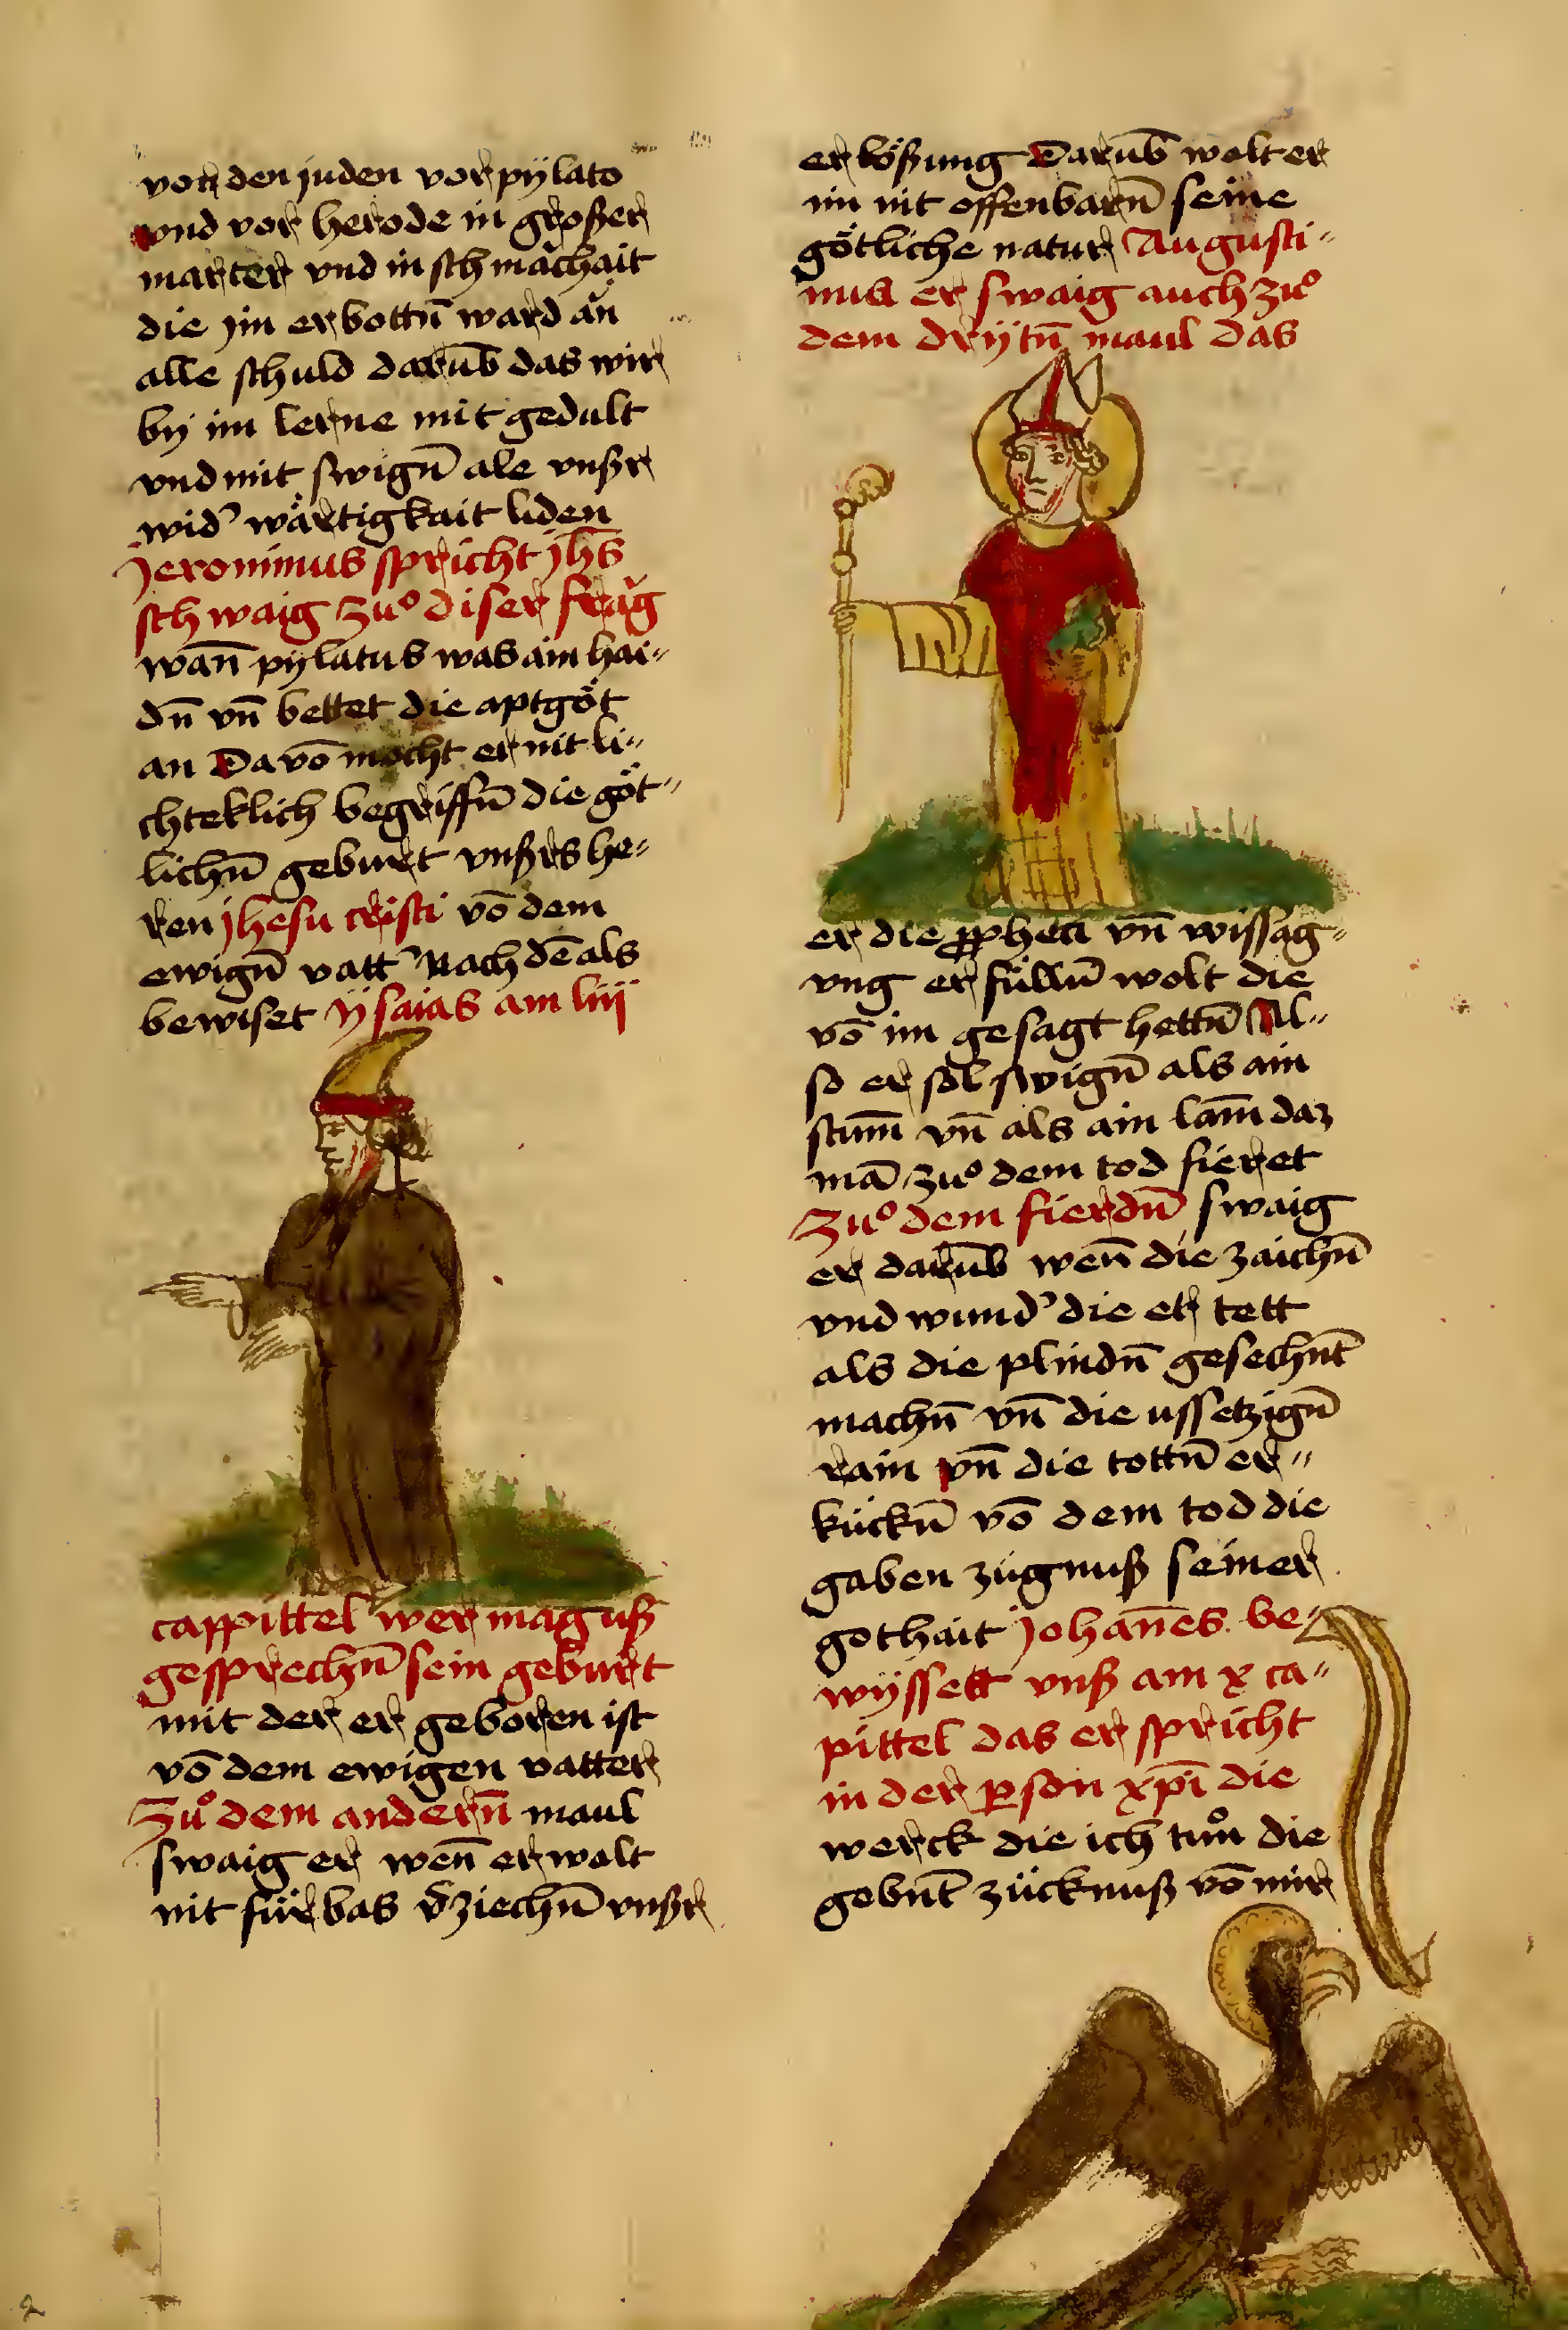 von den juden vor pÿlato
vnd vor herode in großer
marter vnd in schmächait
die jm erbottn̄ ward ăn
alle schuld darūb das wir
bÿ im lerne mit gedult
vnd mit swign̄ ale vnßr
wid᾿ wärtigkait liden
Jeronimus spricht jhs̄
schwaig zuͦ diser frăg
wan̄ pÿlatus was ain hai⸗
dn̄ vn̄ bettet die aptgöt
an Da vō mocht er nit li⸗
chteklich begriffn̄ die göt⸗
lichn̄ geburt vnßrs he⸗
ren jhesu cristi vō dem
ewign̄ vatt᾿ Nach dē als
bewiset ÿsaias am liij
cappittel wer mag uß
gesprechn̄ sein geburt
mit der er geboren ist
vō dem ewigen vatter
Zuͦ dem andern̄ maul
swaig er wen̄ er wolt
nit fürbas v̄ziechn̄ vnßr
erlößung Darūb wolt er
im nit offenbarn̄ seine
götliche natur Augusti⸗
nus er swaig auch zuͦ
dem drÿtn̄ maul das
er die ꝓpheci vn̄ wissag⸗
vng erfülln̄ wolt die
vō im gesagt hettn̄ Al⸗
so er sol swign̄ als ain
stum̄ vn̄ als ain lam̄ daz
mā zuͦ dem tod fieret
Zuͦ dem fierdn̄ swaig
er darūb wen̄ die zaichn̄
vnd wund᾿ die er tett
als die plindn̄ gesechnt̄
machn̄ vn̄ die ussetzign̄
rain vn̄ die tottn̄ er⸗
kückn̄ vō dem tod die
gaben zügnuß seiner
gothait Johan̄es be⸗
wÿssett vnß am x ca⸗
pittel das er spricht
in der ꝑson xp̄i die
werck die ich tuͦn die
gebnt̄ zücknuß vō mir